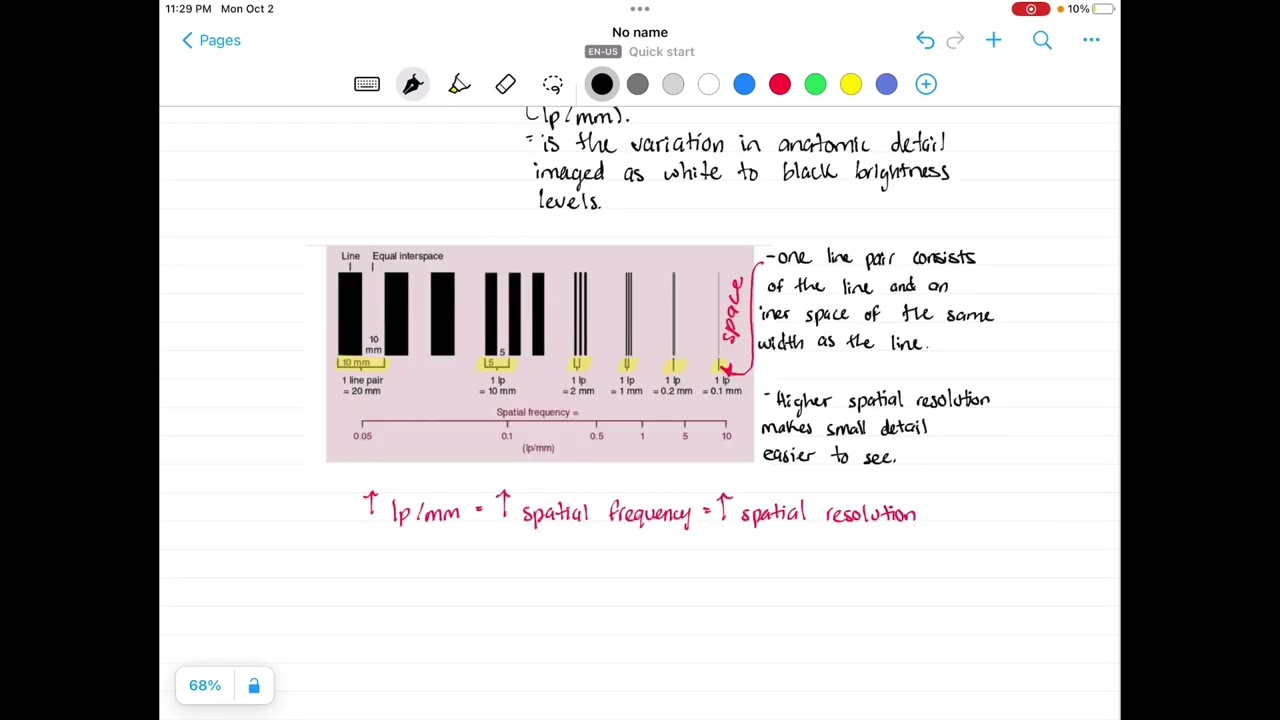 11:29 PM Mon Oct 2
10%
Pages
No name
EN-US Quick start
(lp/mm).
= is the variation in anatomic detail
imaged as white to black brightness
levels.
Line Equal interspace
10
mm
10 mm
5
5
1 line pair
= 20 mm
1 lp
= 10 mm
1 lp
= 2 mm
1 lp
= 1 mm
1 lp
= 0.2 mm
1 lp
= 0.1 mm
space
Spatial frequency =
0.05 0.1 0.5 1 5 10
(lp/mm)
- one line pair consists
of the line and an
iner space of the same
width as the line.
- Higher spatial resolution
makes small detail
easier to see.
↑ lp/mm = ↑ spatial frequency = ↑ spatial resolution
68%